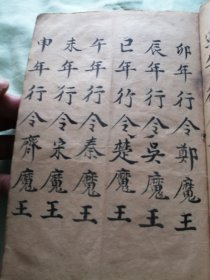 卯年行令鄭魔王
辰年行令吳魔王
巳年行令楚魔王
午年行令秦魔王
未年行令宋魔王
申年行令齊魔王